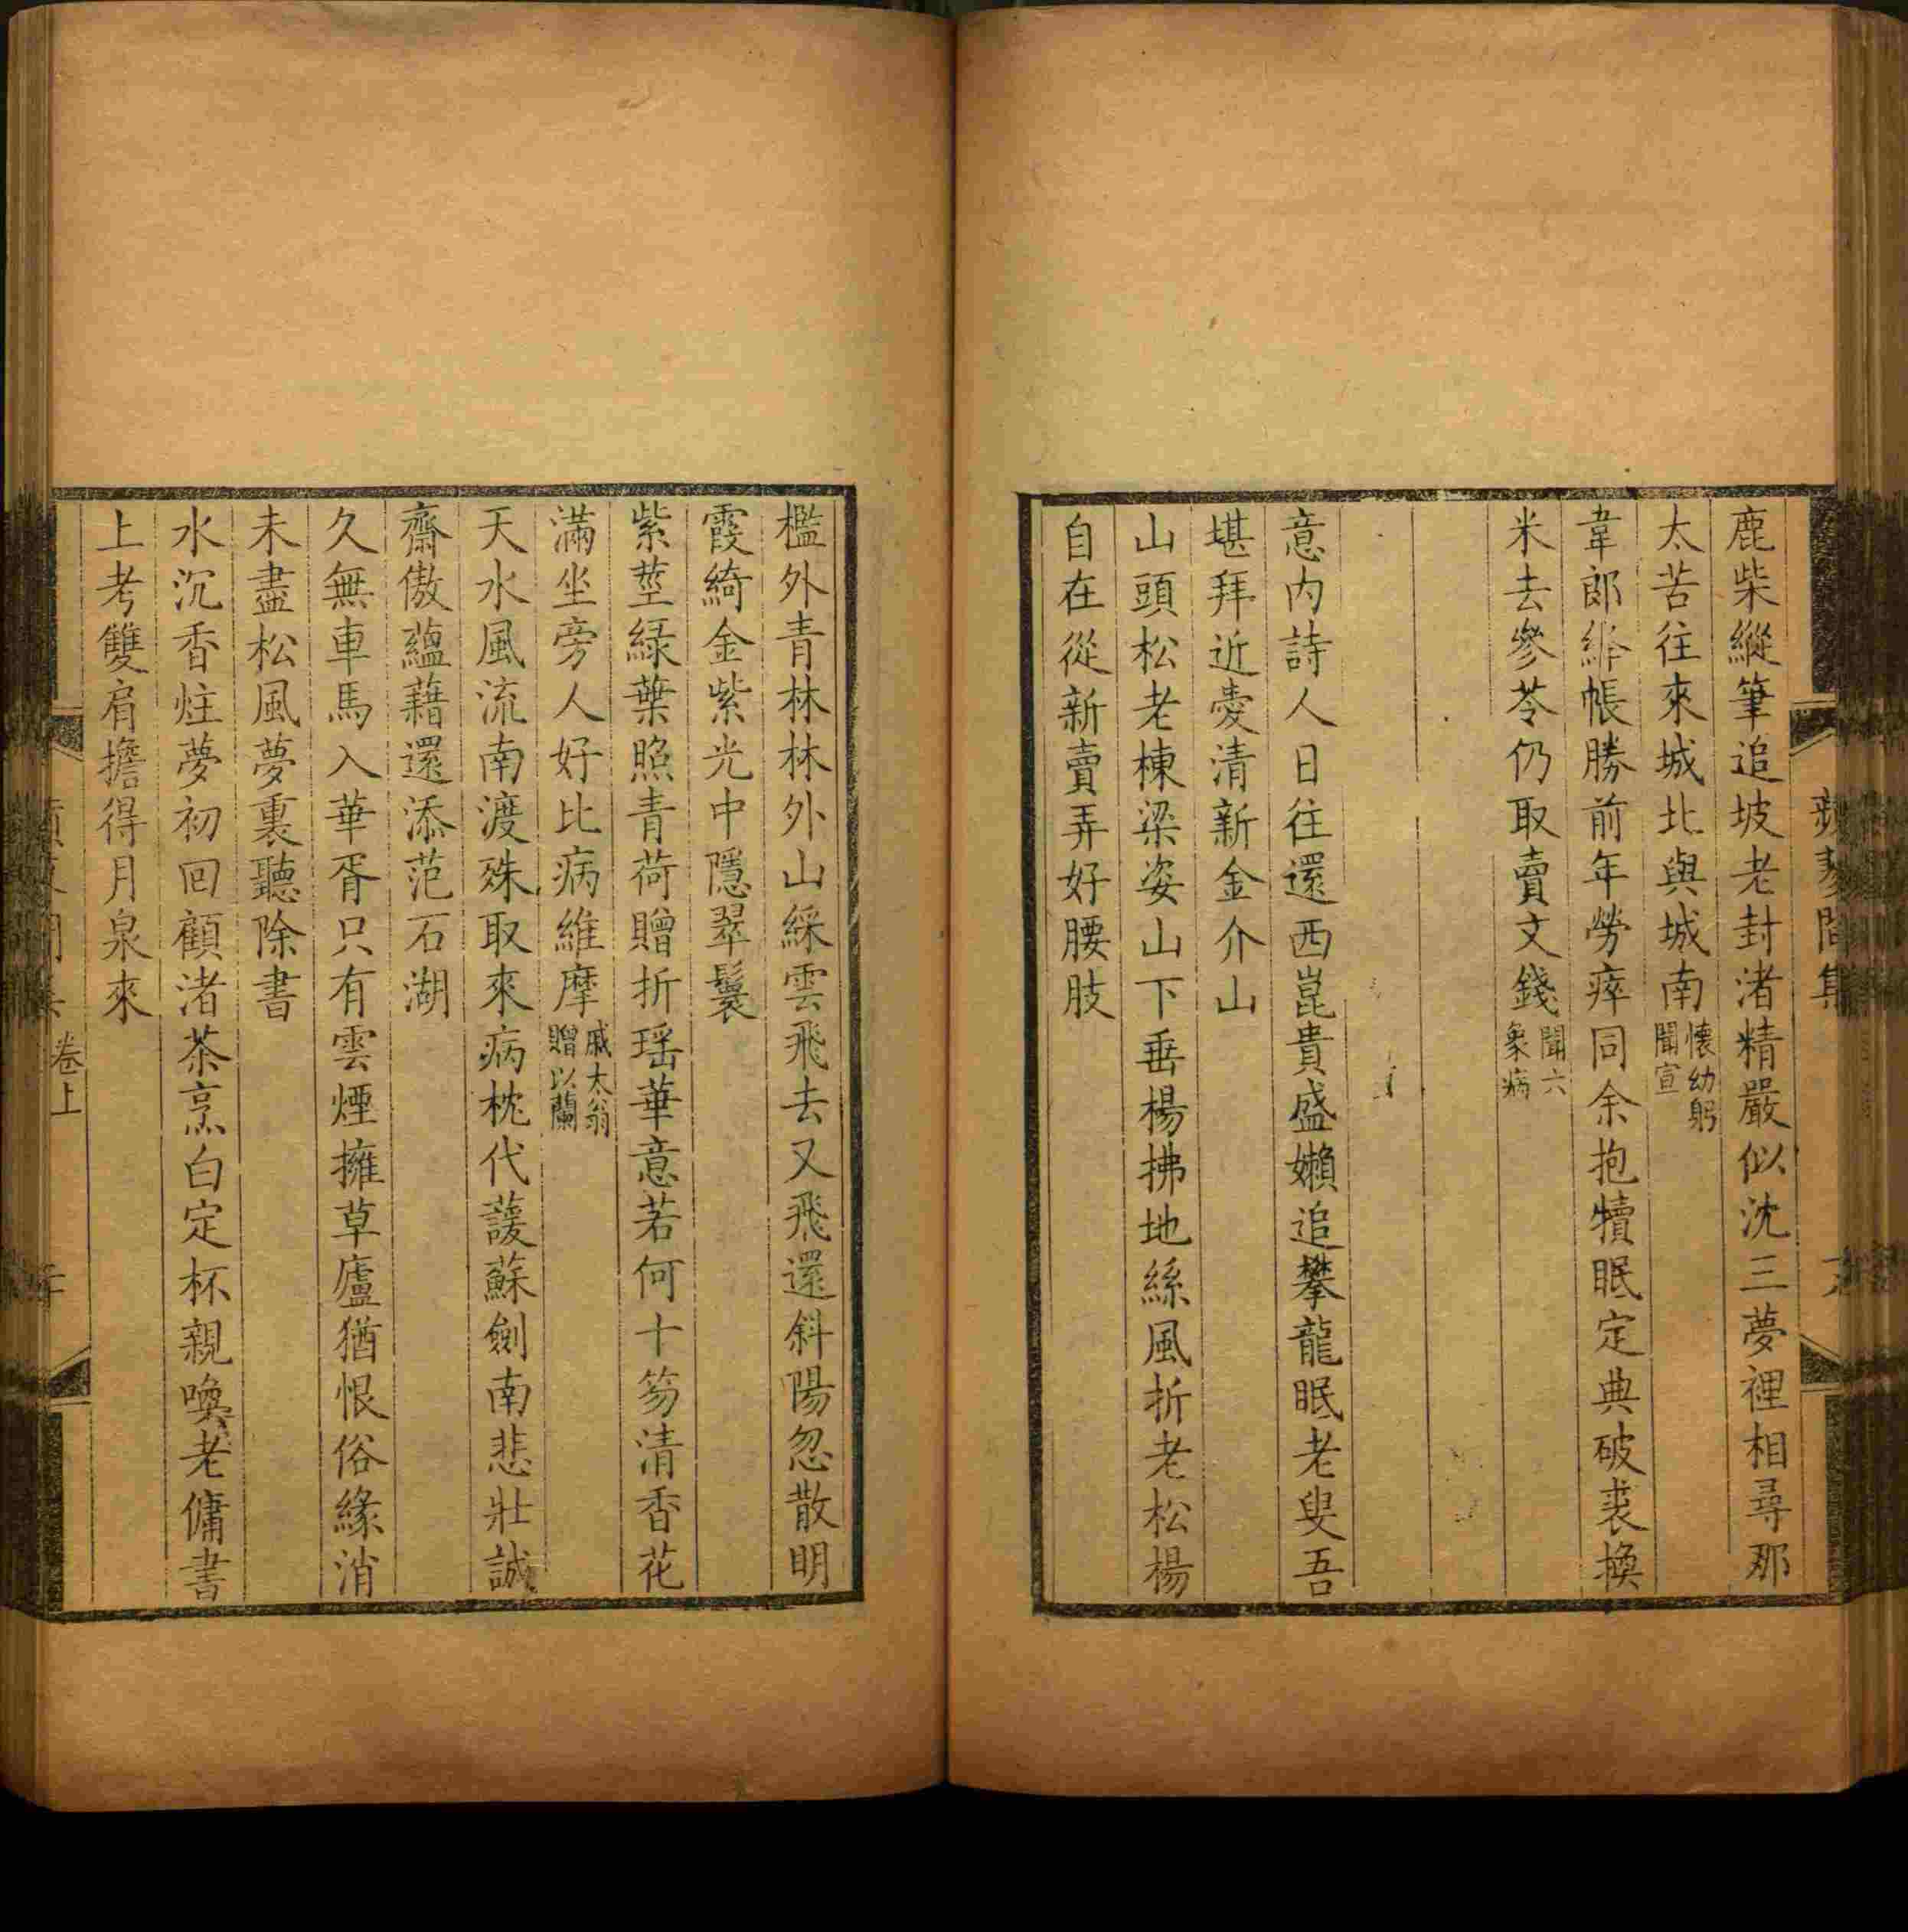 鹿柴縱筆追坡老封渚精嚴似沈三夢裡相尋那
太苦往來城北與城南懷幼躬
聞宣
韋郎絳帳勝前年勞瘁同余抱犢眠定典破裘換
米去參苓仍取賣文錢聞六
象病
意內詩人日往還西崑貴盛嬾追攀龍眠老叟吾
堪拜近愛清新金介山
山頭松老棟梁姿山下垂楊拂地絲風折老松楊
自在從新賣弄好腰肢
檻外青林林外山綵雲飛去又飛還斜陽忽散明
霞綺金紫光中隱翠鬟
紫莖綠葉照青荷贈折瑶華意若何十笏清香花
滿坐旁人好比病維摩戚太翁
贈以蘭
天水風流南渡殊取來病枕代護蘇劍南悲壯誠
齋傲蘊藉還添范石湖
久無車馬入華胥只有雲煙擁草廬猶恨俗緣消
未盡松風夢裏聽除書
水沉香炷夢初回顧渚茶烹白定杯親喚老傭書
上考雙肩擔得月泉來
卷上